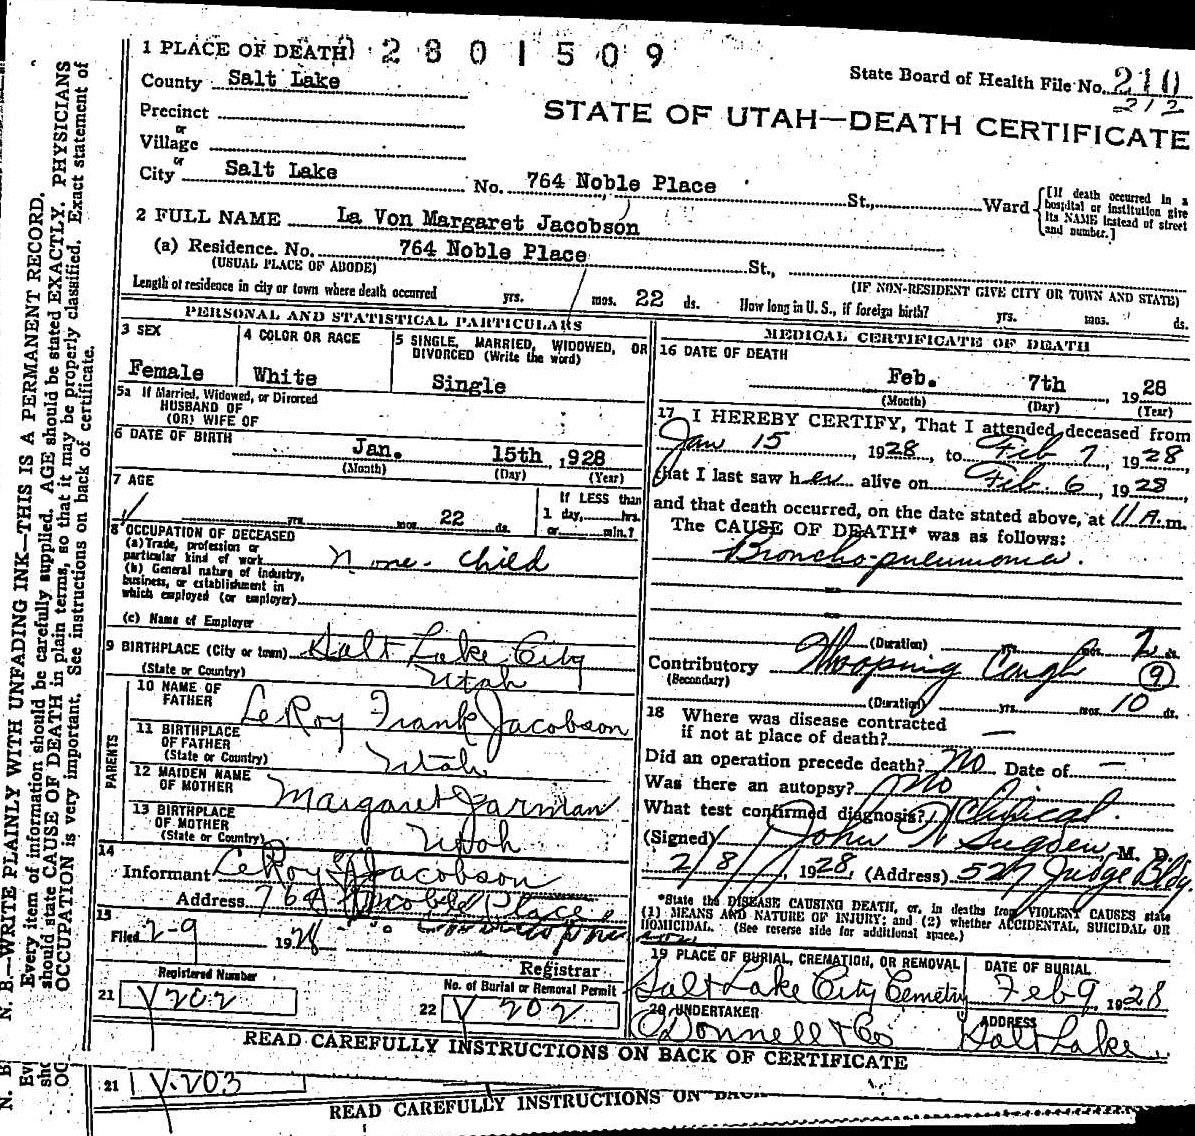 N. B.—WRITE PLAINLY WITH UNFADING INK—THIS IS A PERMANENT RECORD.
Every item of information should be carefully supplied. AGE should be stated EXACTLY. PHYSICIANS
should state CAUSE OF DEATH in plain terms, so that it may be properly classified. Exact statement of
OCCUPATION is very important. See instructions on back of certificate.
1 PLACE OF DEATH 2801509
State Board of Health File No. 210
212
County Salt Lake
STATE OF UTAH—DEATH CERTIFICATE
Precinct
or
Village
or
City Salt Lake No. 764 Noble Place St., Ward
[If death occurred in a hospital or institution give its NAME instead of street and number.]
2 FULL NAME La Von Margaret Jacobson
(a) Residence. No. 764 Noble Place St.,
(USUAL PLACE OF ABODE) (IF NON-RESIDENT GIVE CITY OR TOWN AND STATE)
Length of residence in city or town where death occurred yrs. mos. 22 ds. How long in U. S., if foreign birth? yrs. mos. ds.
PERSONAL AND STATISTICAL PARTICULARS
3 SEX 4 COLOR OR RACE 5 SINGLE, MARRIED, WIDOWED, OR
DIVORCED (Write the word)
Female White Single
5a If Married, Widowed, or Divorced
HUSBAND OF
(OR) WIFE OF
6 DATE OF BIRTH
Jan. 15th, 1928
(Month) (Day) (Year)
7 AGE If LESS than
yrs. mos. 22 ds. 1 day, hrs.
or min.?
8 OCCUPATION OF DECEASED
(a) Trade, profession or
particular kind of work None - Child
(b) General nature of industry,
business, or establishment in
which employed (or employer)
(c) Name of Employer
9 BIRTHPLACE (City or town) Salt Lake City
(State or Country) Utah
PARENTS
10 NAME OF
FATHER LeRoy Frank Jacobson
11 BIRTHPLACE
OF FATHER
(State or Country) Utah
12 MAIDEN NAME
OF MOTHER Margaret Jarman
13 BIRTHPLACE
OF MOTHER
(State or Country) Utah
14
Informant LeRoy F Jacobson
Address 764 Noble Place
15
Filed 2-9 1928
Registrar
Registered Number No. of Burial or Removal Permit
21 Y 202 22 Y 202
MEDICAL CERTIFICATE OF DEATH
16 DATE OF DEATH
Feb. 7th 1928
(Month) (Day) (Year)
17 I HEREBY CERTIFY, That I attended deceased from
Jan 15, 1928, to Feb 7, 1928
that I last saw her alive on Feb. 6, 1928,
and that death occurred, on the date stated above, at 11 A. m.
The CAUSE OF DEATH* was as follows:
Broncho-pneumonia.
(Duration) yrs. mos. 2 ds.
Contributory Whooping Cough 9
(Secondary)
(Duration) yrs. mos. 10 ds.
18 Where was disease contracted
if not at place of death? —
Did an operation precede death? No Date of —
Was there an autopsy? No
What test confirmed diagnosis? Clinical.
(Signed) John W Sugden, M. D.
2/8/, 1928, (Address) 527 Judge Bldg.
*State the DISEASE CAUSING DEATH, or, in deaths from VIOLENT CAUSES state
(1) MEANS AND NATURE OF INJURY; and (2) whether ACCIDENTAL, SUICIDAL OR
HOMICIDAL. (See reverse side for additional space.)
19 PLACE OF BURIAL, CREMATION, OR REMOVAL DATE OF BURIAL
Salt Lake City Cemetry Feb 9 1928
20 UNDERTAKER ADDRESS
O'Donnell & Co Salt Lake
READ CAREFULLY INSTRUCTIONS ON BACK OF CERTIFICATE
21 Y-203
READ CAREFULLY INSTRUCTIONS ON BACK